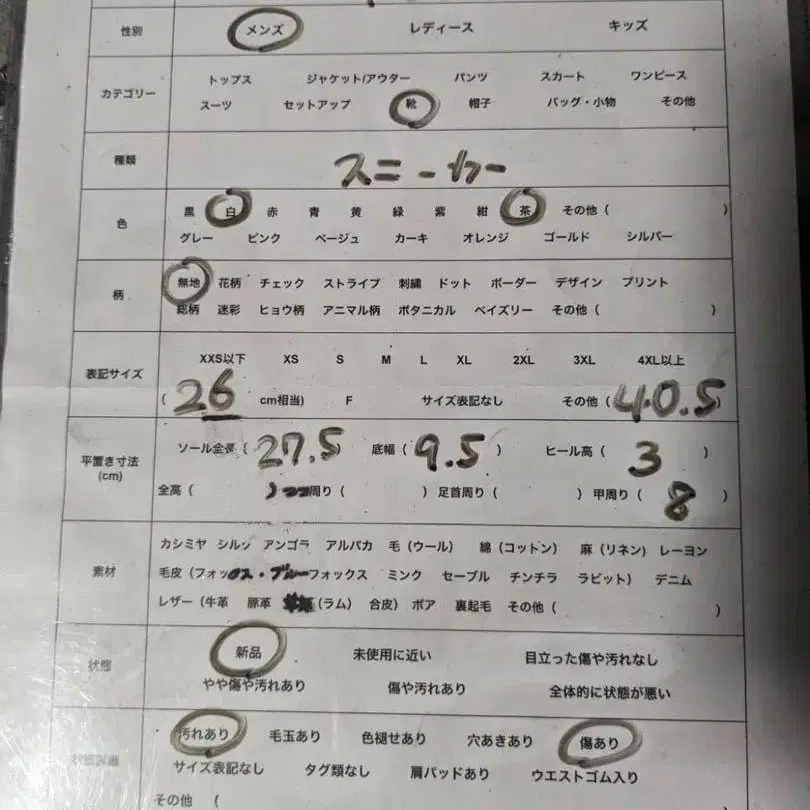 性別 メンズ レディース キッズ
カテゴリー トップス ジャケット/アウター パンツ スカート ワンピース
スーツ セットアップ 靴 帽子 バッグ・小物 その他
種類 スニーカー
色 黒 白 赤 青 黄 緑 紫 紺 茶 その他 ( )
グレー ピンク ベージュ カーキ オレンジ ゴールド シルバー
柄 無地 花柄 チェック ストライプ 刺繍 ドット ボーダー デザイン プリント
総柄 迷彩 ヒョウ柄 アニマル柄 ボタニカル ペイズリー その他 ( )
表記サイズ XXS以下 XS S M L XL 2XL 3XL 4XL以上
( 26 cm相当) F サイズ表記なし その他 ( 40.5 )
平置き寸法 (cm) ソール全長 ( 27.5 底幅 ( 9.5 ) ヒール高 ( 3 )
全高 ( ) 周り ( ) 足首周り ( ) 甲周り ( 8 )
素材 カシミヤ シルク アンゴラ アルパカ 毛 (ウール) 綿 (コットン) 麻 (リネン) レーヨン
毛皮 (フォックス・ブルーフォックス ミンク セーブル チンチラ ラビット) デニム
レザー (牛革 豚革 (ラム) 合皮) ボア 裏起毛 その他 ( )
状態 新品 未使用に近い 目立った傷や汚れなし
やや傷や汚れあり 傷や汚れあり 全体的に状態が悪い
汚れあり 毛玉あり 色褪せあり 穴あきあり 傷あり
サイズ表記なし タグ類なし 肩パッドあり ウエストゴム入り
その他 (